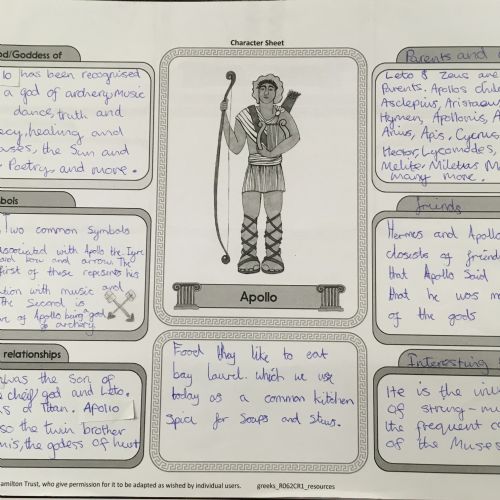 Character Sheet
od/Goddess of
lo has been recognised
a god of archery, Music
dance, truth and
ecy, healing and
ases, the Sun and
Poetry, and more.
bols
Two common symbols
associated with Apollo the lyre
and bow and arrow. The
first of these represents his
tion with music and
The Second is
of Apollo being god
of archery
relationships
was the son of
chief god and Leto.
s a titan. Apollo
so the twin brother
mis, the godess of hunt
Apollo
Food they like to eat
bay laurel. which we use
today as a common kitchen
spice for Soups and Stews.
Parents and
Leto & Zeus are
Parents. Apollos child
Asclepius, Aristaeus
Hymen, Apollonis, A
Anius, Apis, Cycnus
Hector, Lycomedes,
Melite, Miletus M
many more.
friends
Hermes and Apollo
closists of friends
that Apollo Said
that he was m
of the gods
Interesting
He is the
of strong-
the frequent
of the Muses
amilton Trust, who give permission for it to be adapted as wished by individual users. greeks_R062CR1_resources